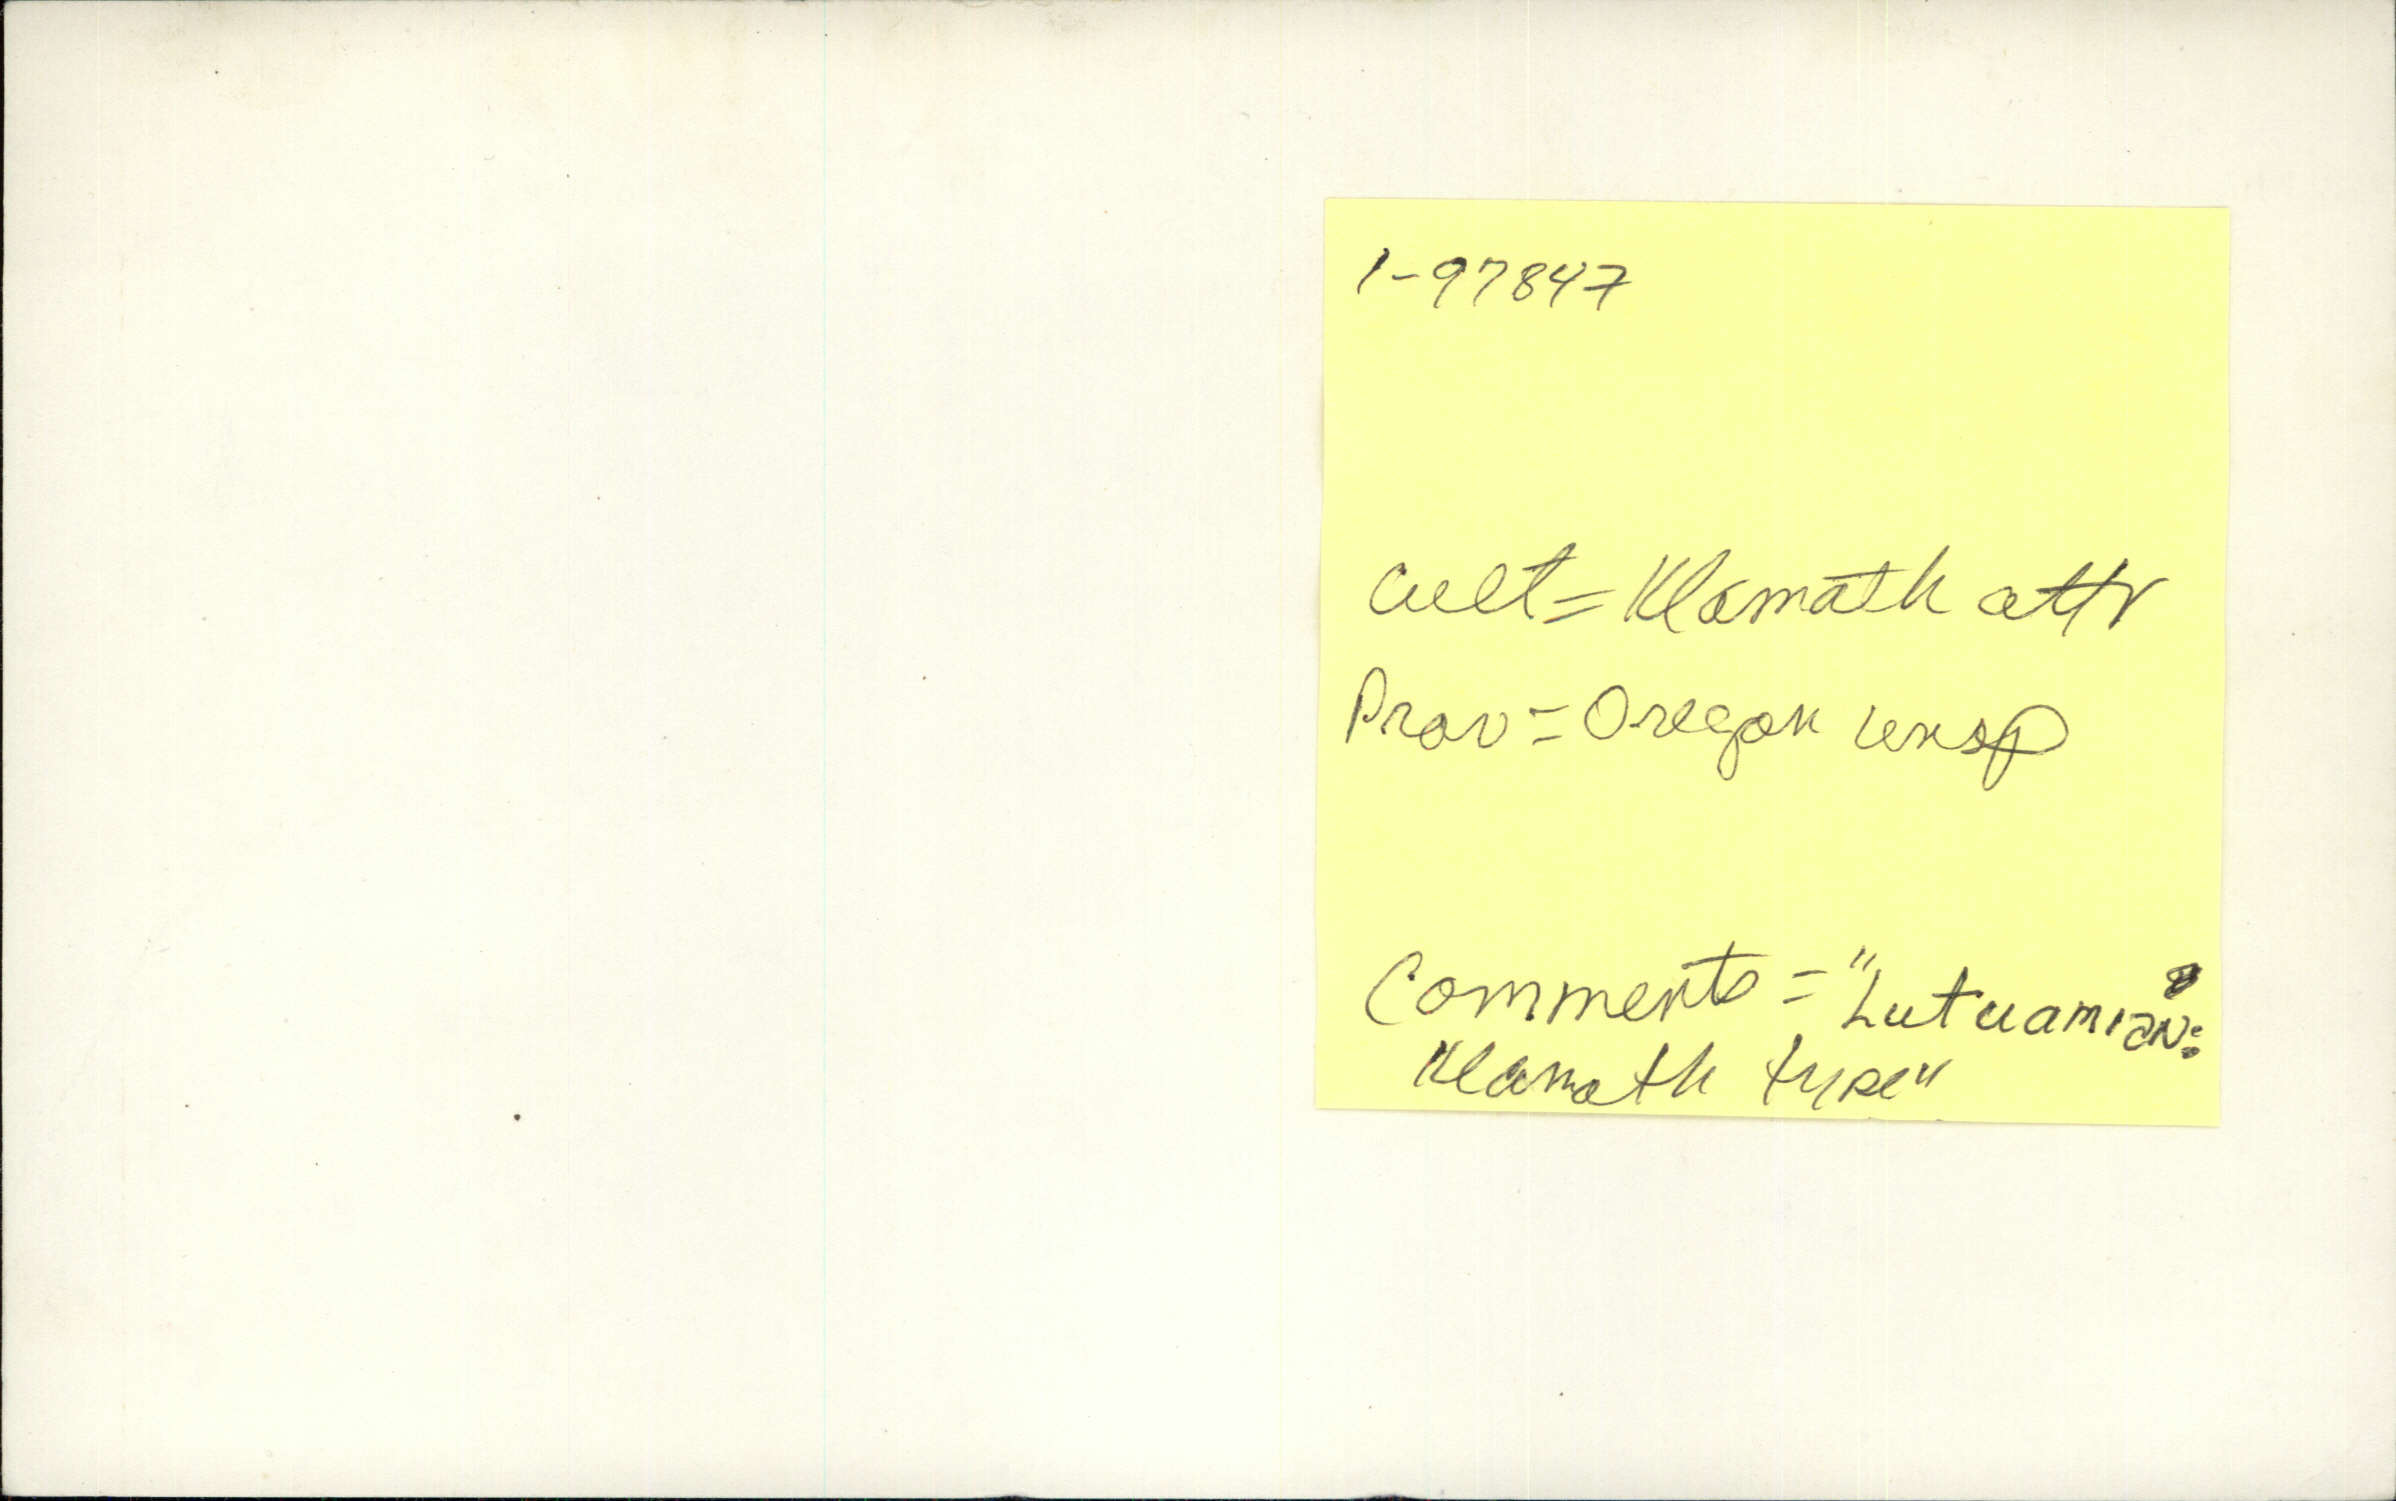 1-97847
Cult = Klamath attr
Prov = Oregon unsp
Comments = "Lutuamian:
Klamath type"